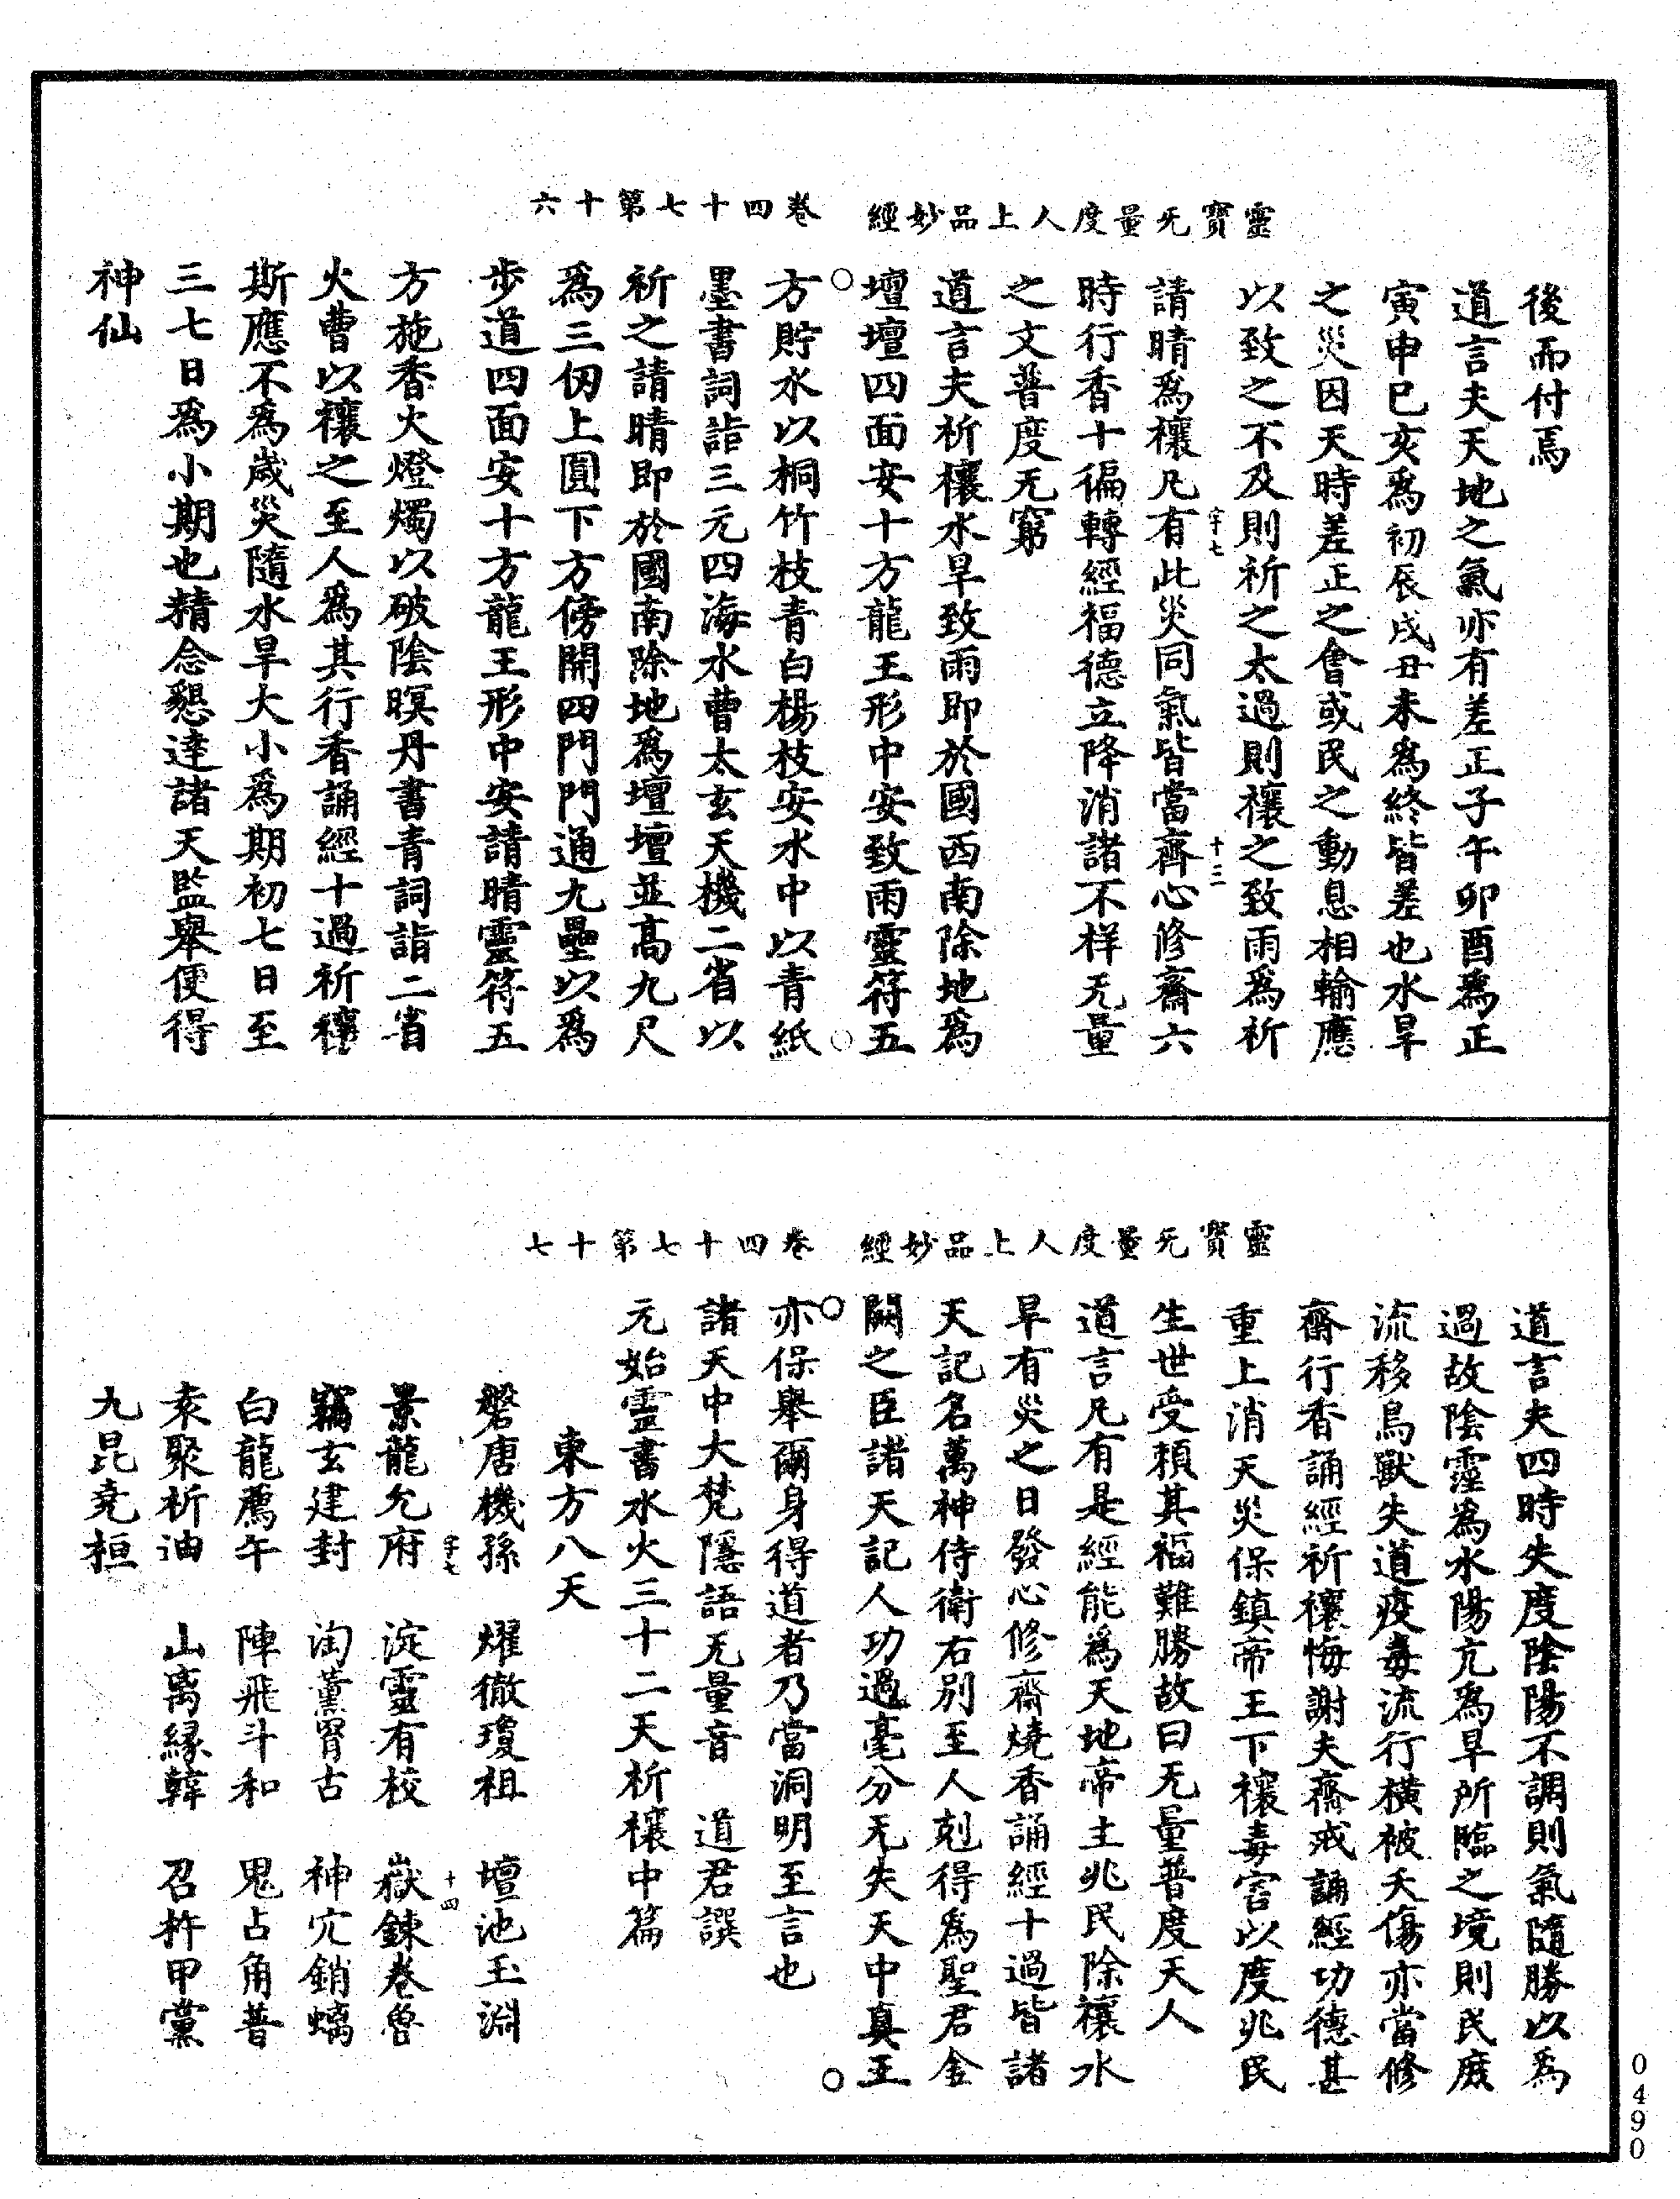 靈寶无量度人上品妙經　卷四十七第十六
後而付焉
道言夫天地之氣亦有差正子午卯酉爲正
寅申巳亥爲初辰戌丑未爲終皆差也水旱
之災因天時差正之會或民之動息相輸應
以致之不及則祈之太過則禳之致雨爲祈
字七　十三
請晴爲禳凡有此災同氣皆當齊心修齋六
時行香十徧轉經福德立降消諸不祥无量
之文普度无窮
道言夫祈禳水旱致雨即於國西南除地爲
壇壇四面安十方龍王形中安致雨靈符五
方貯水以桐竹枝青白楊枝安水中以青紙
墨書詞詣三元四海水曹太玄天機二省以
祈之請晴即於國南除地爲壇壇並高九尺
爲三仞上圓下方傍開四門門通九壘以爲
步道四面安十方龍王形中安請晴靈符五
方施香火燈燭以破陰暝丹書青詞詣二省
火曹以禳之至人爲其行香誦經十過祈禳
斯應不爲歲災隨水旱大小爲期初七日至
三七日爲小期也精念懇達諸天監舉便得
神仙
靈寶无量度人上品妙經　卷四十七第十七
道言夫四時失度陰陽不調則氣隨勝以爲
過故陰霪爲水陽亢爲旱所臨之境則民庶
流移鳥獸失道疫毒流行橫被夭傷亦當修
齋行香誦經祈禳悔謝夫齋戒誦經功德甚
重上消天災保鎮帝王下禳毒害以度兆民
生世受賴其福難勝故曰无量普度天人
道言凡有是經能爲天地帝土兆民除禳水
旱有災之日發心修齋燒香誦經十過皆諸
天記名萬神侍衛右別至人剋得爲聖君金
闕之臣諸天記人功過毫分无失天中真王
亦保舉爾身得道者乃當洞明至言也
諸天中大梵隱語无量音　道君譔
元始靈書水火三十二天祈禳中篇
東方八天
磐唐機孫　燿徹瓊祖　壇池玉淵
字七　十四
景龍允府　淀靈有校　嶽鍊卷魯
竊玄建封　淘薰胃古　神宂銷螭
白龍薦午　陣飛斗和　鬼占角普
聚祈迪　山离緣韓　召杵甲黨
九昆堯桓
0490